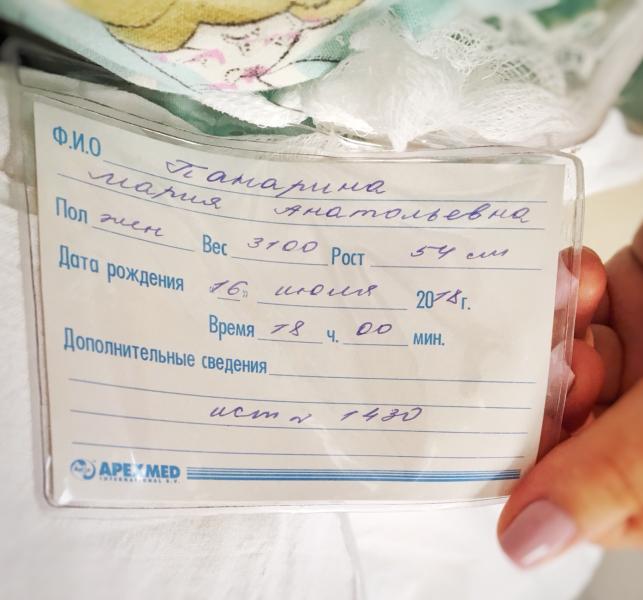 Ф.И.О Панарина
Мария Анатольевна
Пол жен Вес 3100 Рост 54 см
Дата рождения "16" июля 2018 г.
Время 18 ч. 00 мин.
Дополнительные сведения
ист № 1430
APEXMED
INTERNATIONAL B.V.